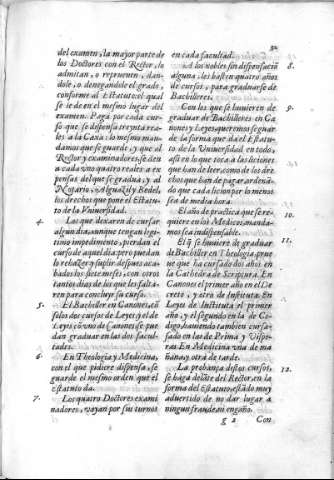 del examen, la mayor parte de
los Doctores con el Rector, lo
admitan, o reprueuen, dan-
dole, o denegandole el grado,
conforme al Estatuto: el qual
se ie de en el mesmo lugar del
examen. Paga por cada cur-
so que se dispensa treynta rea-
les a la Caxa: lo mesmo man-
damos que se guarde, y que al
Rector y examinadores, se den
a cada vno quatro reales a ex-
pensas del que se gradua, y al
Notario, Alguazil y Bedel,
los derechos que pone el Esta-
tu to de la Vniuersidad.
4. Los que dexaren de cursar
algun dia, aunque tengan legi-
timo impedimento, pierdan el
curso de aquel dia, pero puedan
lo rehazer y suplir despues aca-
bados los siete meses, con otros
tantos dias de los que les falta-
ren para concluyr su curso.
5. El Bachiller en Canones, a
solos dos cursos de Leyes, y el de
Leyes, con vno de Canones, se pue
dan graduar en las dos facul-
tades.
6. En Theologia y Medicina,
con el que pidiere dispensa, se
guarde el mesmo orden que el
Estatuto da.
7. Los quatro Doctores exami
nadores, vayan por sus turnos
en cada facultad.
A los nobles sin dispensaciõ 8.
alguna, les basten quatro años
de cursos, para graduarse de
Bachilleres.
Con los que se huuieren de 9.
graduar de Bachilleres en Ca
nones y Leyes, queremos se guar
de la forma que da el Estatu-
to de la Vniuersidad en todo,
assi en lo que toca a las liciones
que han de leer, como de los dere
chos que han de pagar ordenã-
do que cada licion por lo menos
sea de media hora.
El año de practica que se re- 10.
quiere en los Medicos, manda-
mos sea indispensable.
El q̃ se huuiere de graduar 11.
de Bachiller en Theologia, prue
ue que ha cursado dos años en
la Cathedra de Scriptura. En
Canones el primer año en el De
creto, y otro de Instituta. En
Leyes de Instituta el primer
año, y el segundo en la de Co-
digo, hauiendo tambien cursa-
do en las de Prima y Vispe-
ras. En Medicina vna de ma
ñana, y otra de tarde.
La probança destos cursos, 12.
se haga delãte del Rector, en la
forma del Estatuto, estãdo muy
aduertido de no dar lugar a
ningun fraude, ni engaño.
g 2 Con